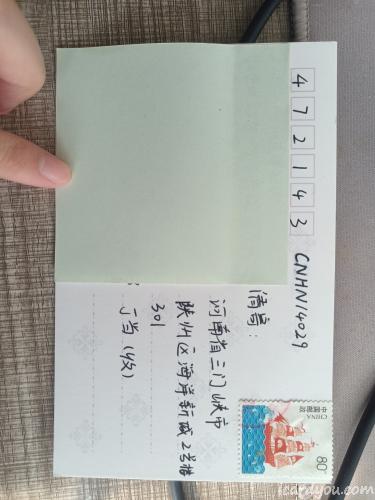 472143
CNHN14029
请寄:
河南省三门峡市
陕州区海岸新城2号楼
301
丁当(收)
80分
中国邮政
CHINA
icardyou.com